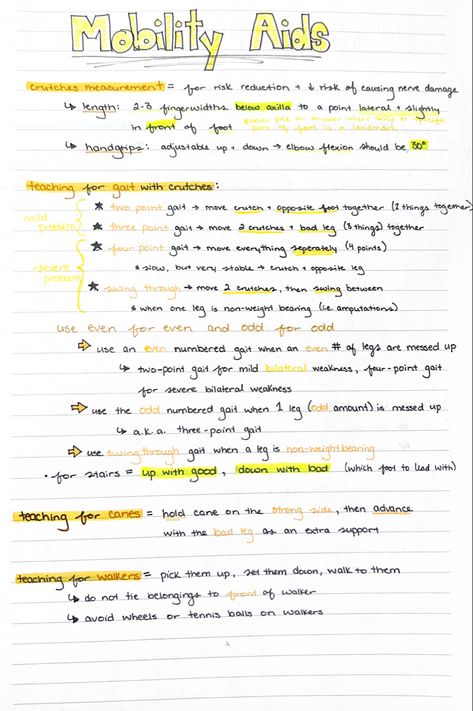 Mobility Aids
crutches measurement = for risk reduction + ↓ risk of causing nerve damage
↳ length: 2-3 fingerwidths below axilla to a point lateral + slightly
in front of foot
↳ handgrips: adjustable up + down → elbow flexion should be 30°
teaching for gait with crutches:
mild problem
★ two point gait → move crutch + opposite foot together (2 things together)
★ three point gait → move 2 crutches + bad leg (3 things) together
severe problem
★ four point gait → move everything seperately (4 points)
* slow, but very stable → crutch + opposite leg
★ swing through → move 2 crutches, then swing between
* when one leg is non-weight bearing (i.e. amputations)
use even for even and odd for odd
⇨ use an even numbered gait when an even # of legs are messed up
↳ two-point gait for mild bilateral weakness, four-point gait
for severe bilateral weakness
⇨ use the odd numbered gait when 1 leg (odd amount) is messed up
↳ a.k.a. three-point gait
⇨ use swing through gait when a leg is non-weight bearing
• for stairs = up with good, down with bad (which foot to lead with)
teaching for canes = hold cane on the strong side, then advance
with the bad leg as an extra support
teaching for walkers = pick them up, set them down, walk to them
↳ do not tie belongings to front of walker
↳ avoid wheels or tennis balls on walkers